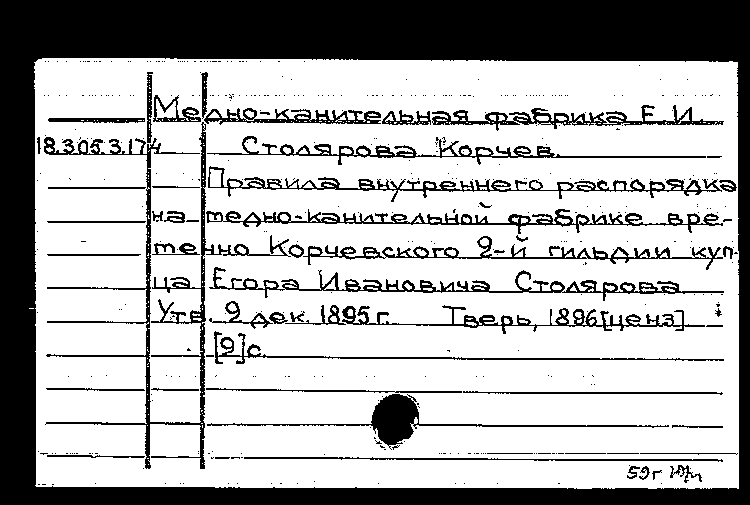 Медно-канительная фабрика Е.И.
18.305.3.174 Столярова Корчев.
Правила внутреннего распорядка
на медно-канительной фабрике вре-
менно Корчевского 2-й гильдии куп-
ца Егора Ивановича Столярова
Утв. 9 дек. 1895 г. Тверь, 1896 [ценз]
[9] с.
59 г